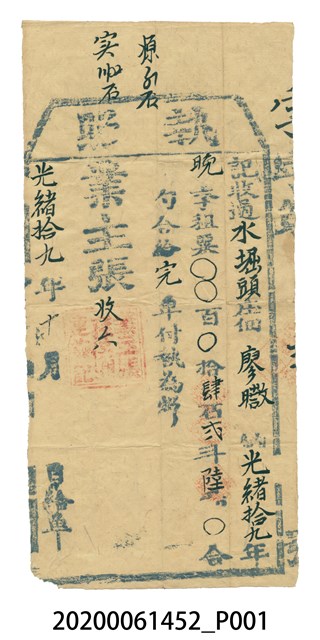 執照
記收過水堀頭庄佃廖暾納光緒拾九年
晚季租粟〇〇百〇拾肆石弍斗陸升〇合
勺合給完單付執為炤
業主張 收人
光緒拾九年十月 日給單
源
实
20200061452_P001